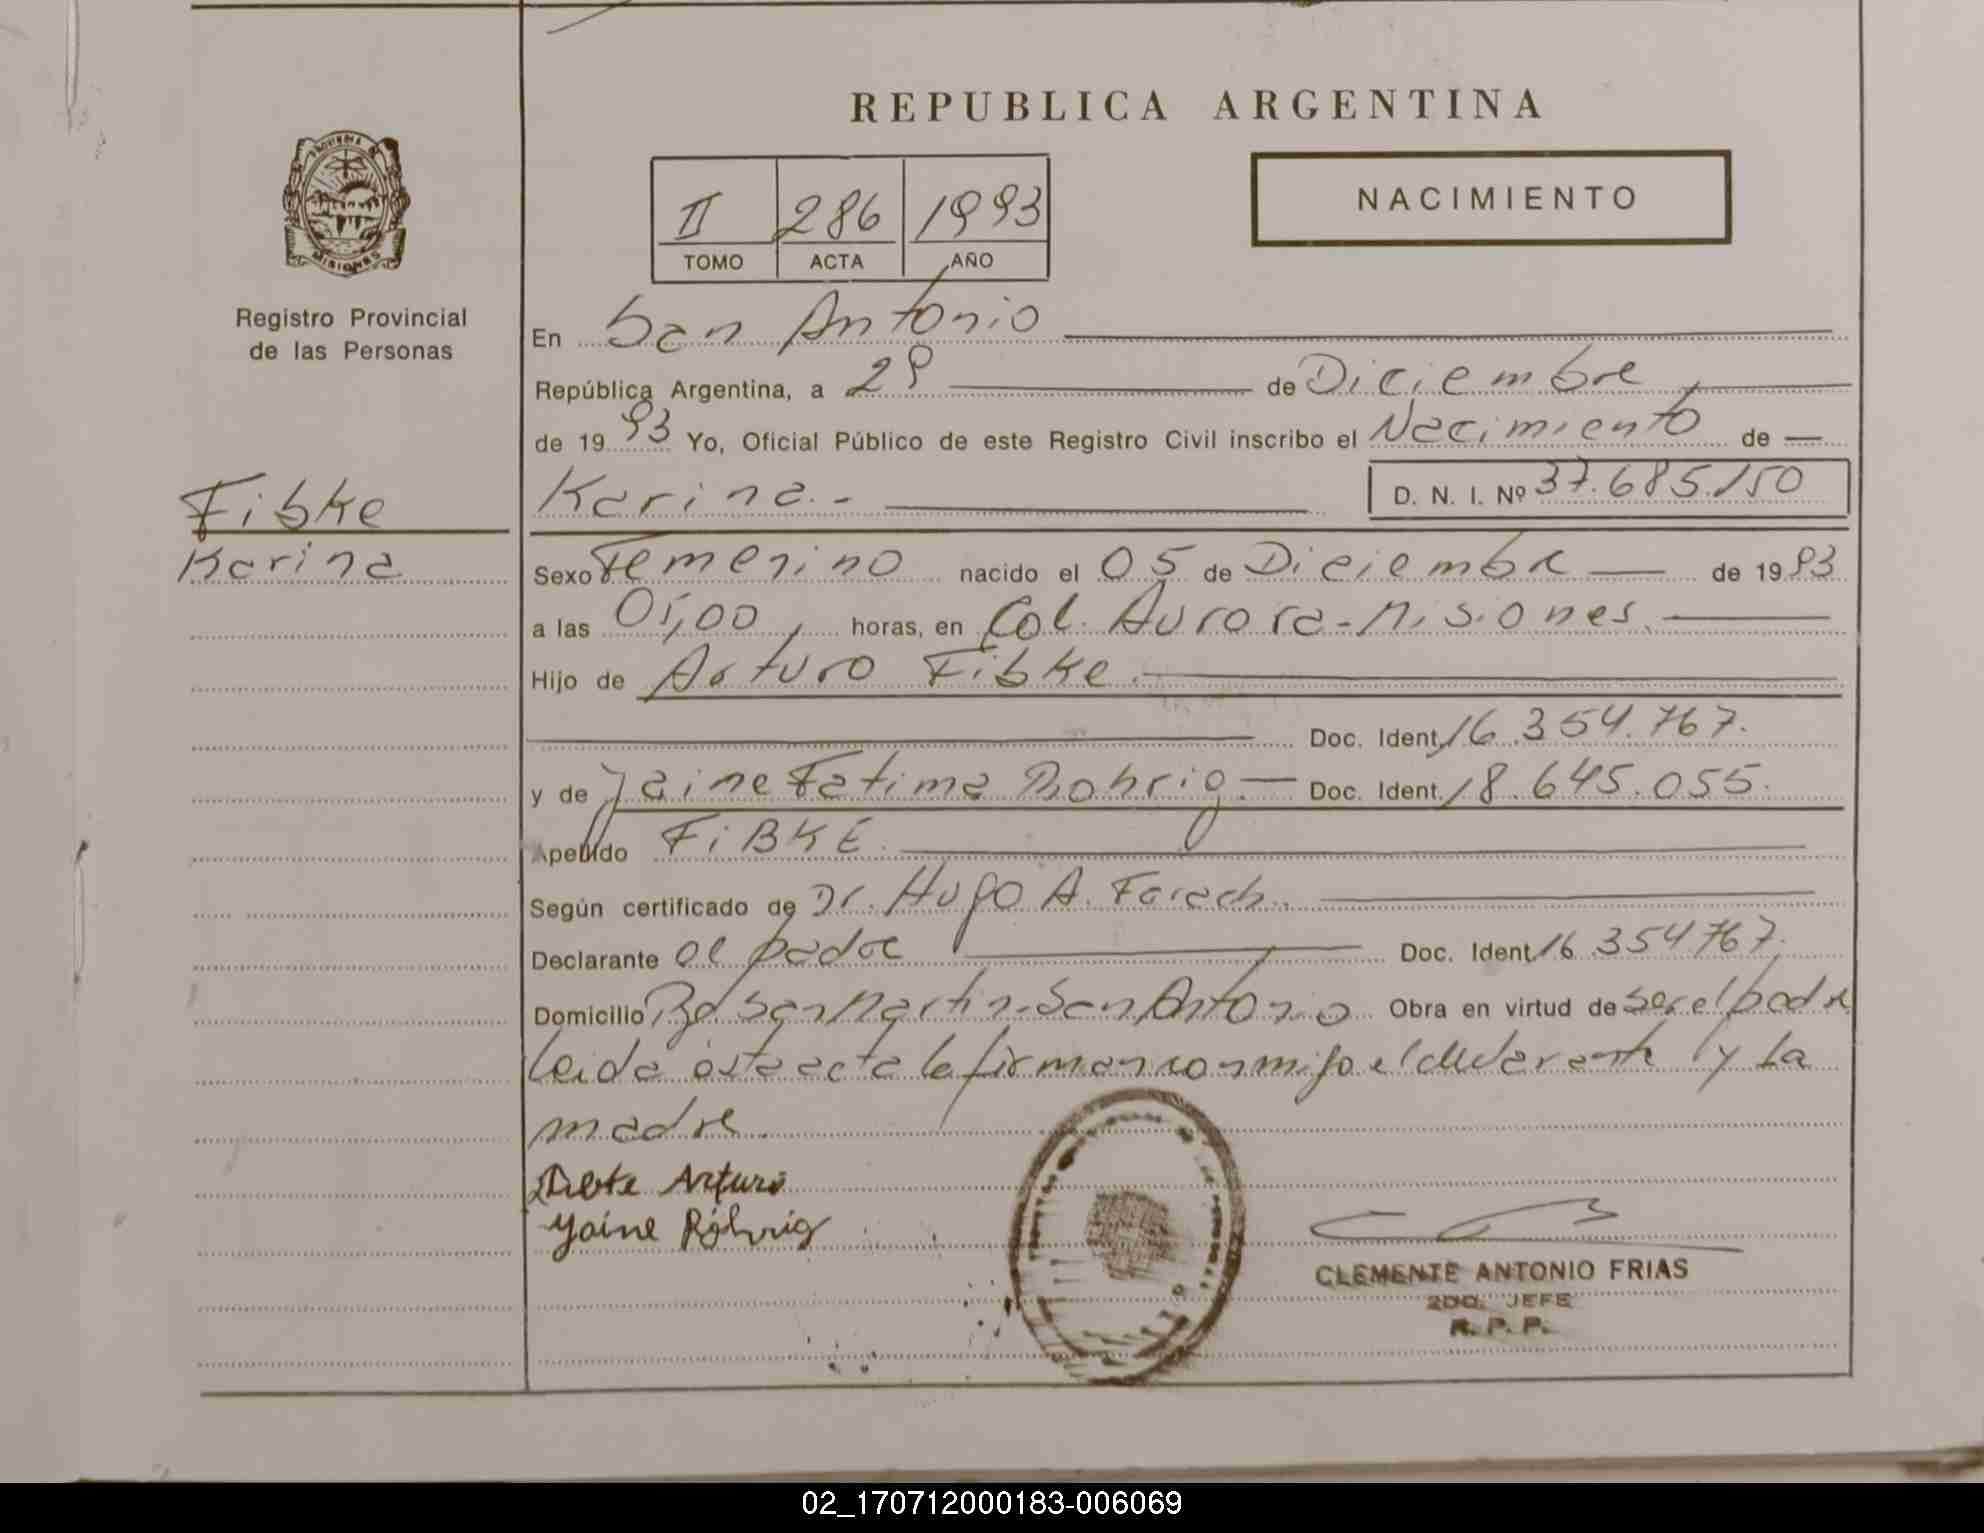 REPUBLICA ARGENTINA
NACIMIENTO
II 286 1993
TOMO ACTA AÑO
MISIONES
Registro Provincial
de las Personas
En San Antonio
República Argentina, a 29 de Diciembre
de 1993 Yo, Oficial Público de este Registro Civil inscribo el Nacimiento de
Fibke
Karina
Karina.- D. N. I. Nº 37.685.150
Sexo Femenino nacido el 05 de Diciembre de 1993
a las 01,00 horas, en Col. Aurora-Misiones.
Hijo de Arturo Fibke.
Doc. Ident. 16.354.767.
y de Jaine Fatima Rohrig.- Doc. Ident. 18.645.055.
Apellido FiBKE.
Según certificado de Dr. Hugo A. Farach.
Declarante el padre Doc. Ident. 16.354767.
Domicilio Bº San Martin-San Antonio Obra en virtud de ser el padre
leida esta acta la firman conmigo el declarante y la
madre.
Fibke Arturo
Yaine Röhrig
CLEMENTE ANTONIO FRIAS
2DO. JEFE
R. P. P.
02_170712000183-006069